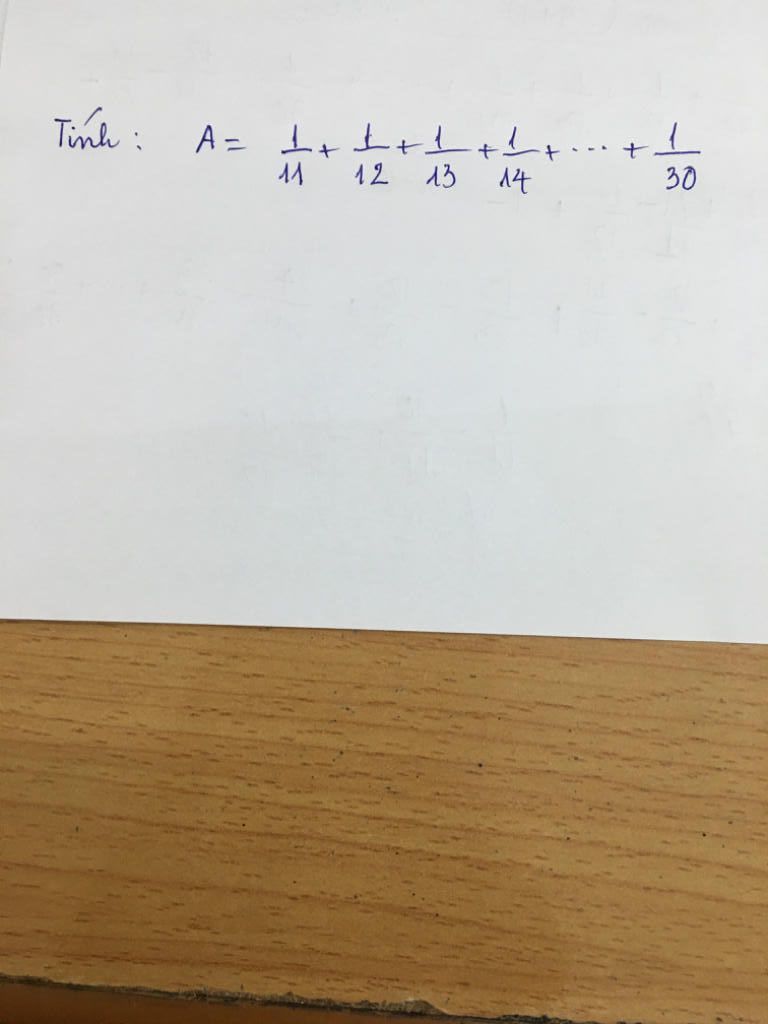 Tính : A = 1/11 + 1/12 + 1/13 + 1/14 + ... + 1/30